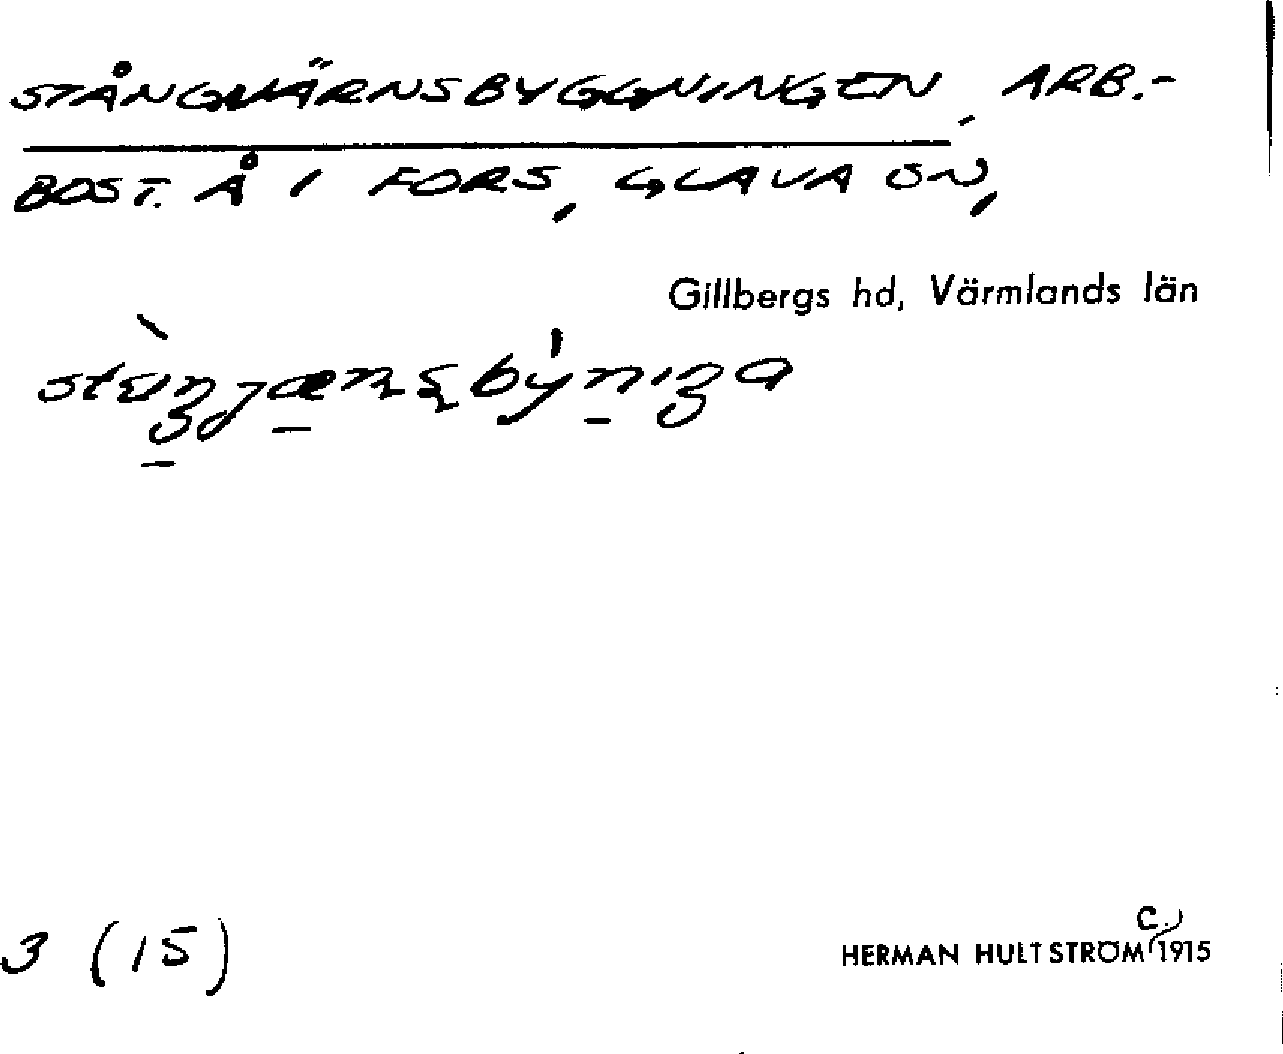 STÅNGJÄRNSBYGGNINGEN, ARB.-
BOST. Å I FORS, GLAVA SN,
Gillbergs hd, Värmlands län
3 (15)
HERMAN HULTSTRÖM C. 1915